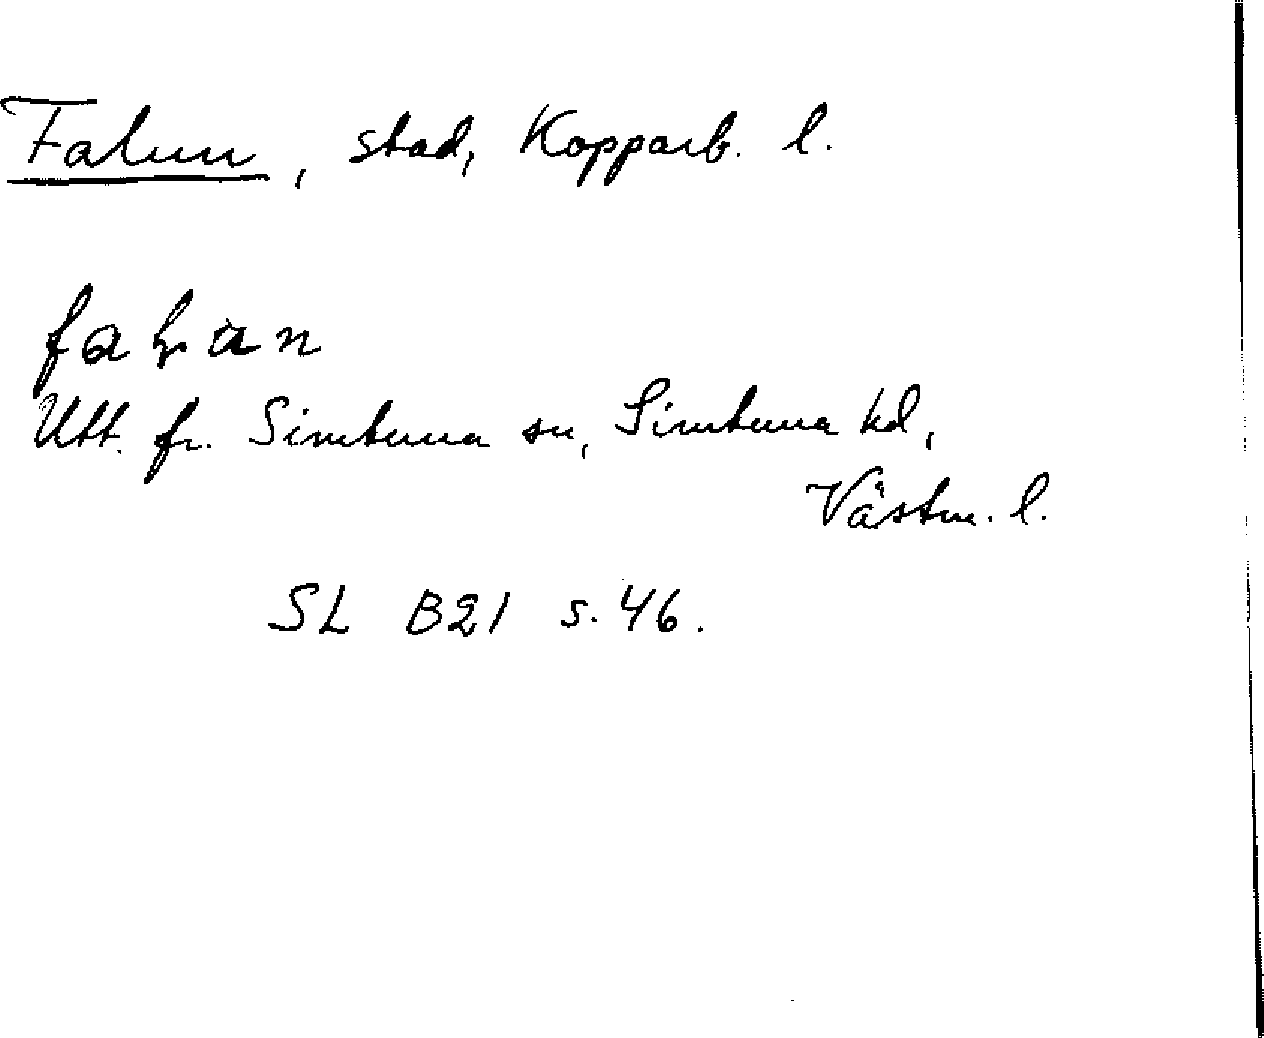 Falun, stad, Kopparb. l.
Utt. fr. Simtuna sn, Simtuna hd,
Västm. l.
SL B21 s. 46.